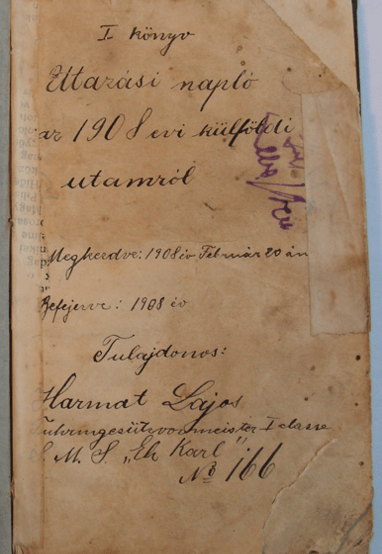 I könyv
Utazási napló
az 1908 évi külföldi
utamról
Megkezdve: 1908 év Február 20 án
Befejezve: 1908 év
Tulajdonos:
Harmat Lajos
I classe
S. M. S. „Eh. Karl”
No 166